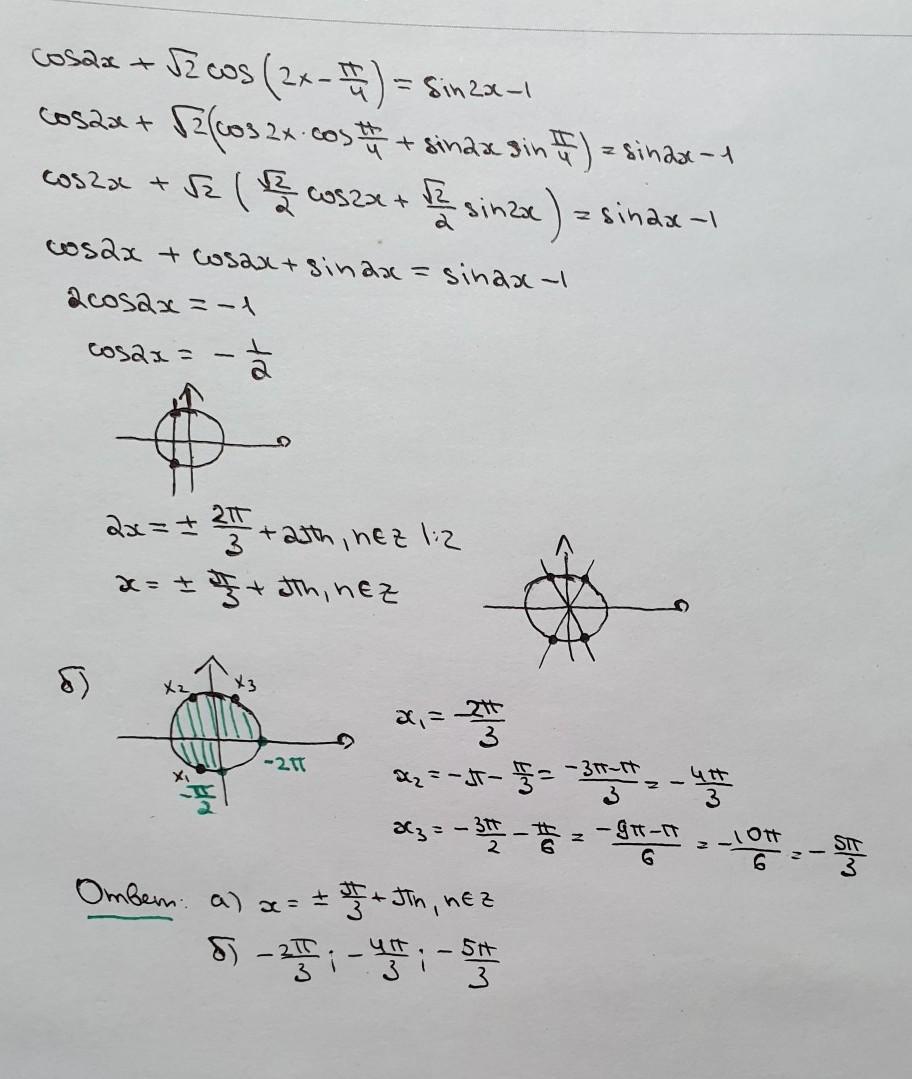 cos2x + √2 cos(2x - π/4) = sin2x - 1
cos2x + √2(cos2x · cos π/4 + sin2x sin π/4) = sin2x - 1
cos2x + √2(√2/2 cos2x + √2/2 sin2x) = sin2x - 1
cos2x + cos2x + sin2x = sin2x - 1
2cos2x = -1
cos2x = - 1/2
2x = ± 2π/3 + 2πn, n∈z |:2
x = ± π/3 + πn, n∈z
б)
x2 x3
x1
-2π
-π/2
x₁ = -2π/3
x₂ = -π - π/3 = -3π-π/3 = - 4π/3
x₃ = - 3π/2 - π/6 = -9π-π/6 = -10π/6 = - 5π/3
Ответ: а) x = ± π/3 + πn, n∈z
б) - 2π/3 ; - 4π/3 ; - 5π/3